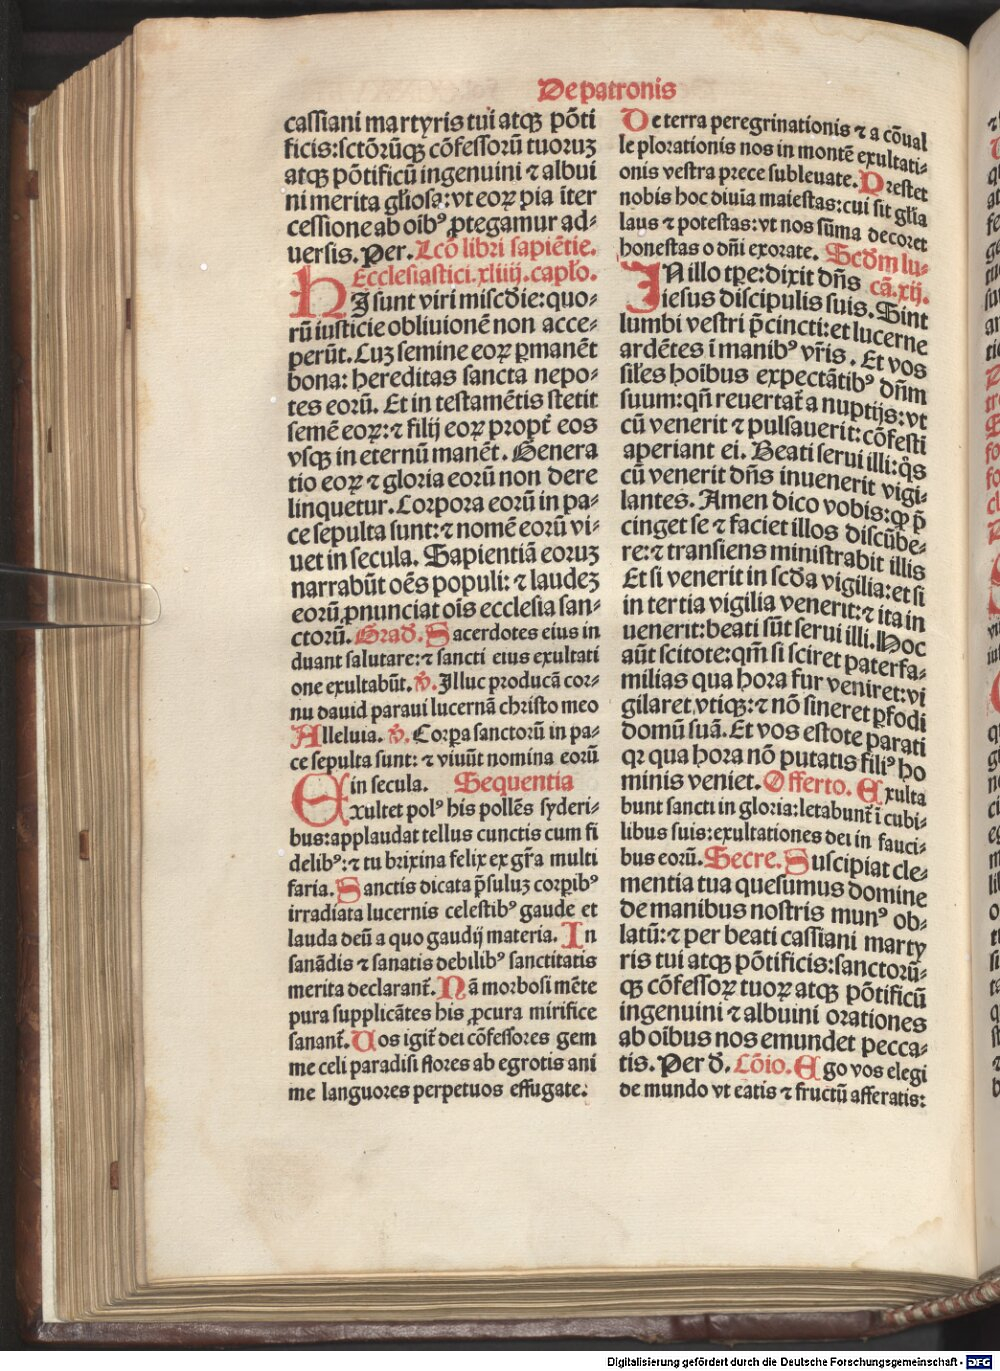 De patronis
cassiani martyris tui atqꝫ põti
ficis:sctõrũqꝫ cõfessorũ tuoruꝫ
atqꝫ põtificũ ingenuini ⁊ albui
ni merita gl̃iosa:vt eoꝝ pia ĩter
cessione ab oib⁹ ꝓtegamur ad⸗
uersis. Per. Lcõ libri sapiẽtie.
Ecclesiastici.xliiij.capl̃o.
HIj sunt viri misc̃die:quo⸗
rũ iusticie obliuionẽ non acce⸗
perũt. Cuꝫ semine eoꝝ ꝑmanẽt
bona: hereditas sancta nepo⸗
tes eorũ. Et in testamẽtis stetit
semẽ eoꝝ:⁊ filij eoꝝ propt̃ eos
vsqꝫ in eternũ manẽt. Genera
tio eoꝝ ⁊ gloria eorũ non dere
linquetur. Corpora eorũ in pa⸗
ce sepulta sunt:⁊ nomẽ eorũ vi⸗
uet in secula. Sapientiã eoruꝫ
narrabũt oẽs populi: ⁊ laudeꝫ
eorũ ꝓnunciat oĩs ecclesia san⸗
ctorũ. Grad̃. Sacerdotes eius in
duant salutare:⁊ sancti eius exultati
one exultabũt. ℣. Illuc producã cor⸗
nu dauid paraui lucernã christo meo
Alleluia. ℣. Corꝑa sanctorũ in pa⸗
ce sepulta sunt: ⁊ viuũt nomina eorũ
in secula. Sequentia
Exultet pol⁹ his pollẽs syderi⸗
bus:applaudat tellus cunctis cum fi
delib⁹:⁊ tu brixina felix ex gr̃a multi
faria. Sanctis dicata p̃suluꝫ corꝑib⁹
irradiata lucernis celestib⁹ gaude et
lauda deũ a quo gaudij materia. In
sanãdis ⁊ sanatis debilib⁹ sanctitatis
merita declarant̃. Nã morbosi mẽte
pura supplicãtes his ꝓcura mirifice
sanant̃. Uos igit̃ dei cõfessores gem
me celi paradisi flores ab egrotis ani
me languores perpetuos effugate.
De terra peregrinationis ⁊ a cõual
le plorationis nos in montẽ exultati⸗
onis vestra prece subleuate. Prestet
nobis hoc diuia maiestas:cui sit gl̃ia
laus ⁊ potestas:vt nos sũma decoret
honestas o dñi exorate. Scd̃m lu⸗
cã.xij.
IN illo tꝑe:dixit dñs
iesus discipulis suis. Sint
lumbi vestri p̃cincti:et lucerne
ardẽtes ĩ manib⁹ vr̃is. Et vos
sil̃es hoĩbus expectãtib⁹ dñm
suum:qñ reuertat̃ a nuptijs:vt
cũ venerit ⁊ pulsauerit:cõfesti
aperiant ei. Beati serui illi:q̃s
cũ venerit dñs inuenerit vigi⸗
lantes. Amen dico vobis:ꝙ p̃
cinget se ⁊ faciet illos discũbe⸗
re:⁊ transiens ministrabit illis
Et si venerit in scd̃a vigilia:et si
in tertia vigilia venerit:⁊ ita in
uenerit:beati sũt serui illi. Hoc
aũt scitote:qm̃ si sciret paterfa⸗
milias qua hora fur veniret:vi
gilaret vtiqꝫ:⁊ nõ sineret ꝑfodi
domũ suã. Et vos estote parati
qꝛ qua hora nõ putatis fili⁹ ho
minis veniet. Offerto. Exulta
bunt sancti in gloria:letabunt̃ ĩ cubi⸗
libus suis:exultationes dei in fauci⸗
bus eorũ. Secre. Suscipiat cle⸗
mentia tua quesumus domine
de manibus nostris mun⁹ ob⸗
latũ:⁊ per beati cassiani marty
ris tui atqꝫ põtificis:sanctorũ⸗
qꝫ cõfessoꝝ tuoꝝ atqꝫ põtificũ
ingenuini ⁊ albuini orationes
ab oĩbus nos emundet pecca⸗
tis. Per d̃. Cõio. Ego vos elegi
de mundo vt eatis ⁊ fructũ afferatis:
Digitalisierung gefördert durch die Deutsche Forschungsgemeinschaft - DFG